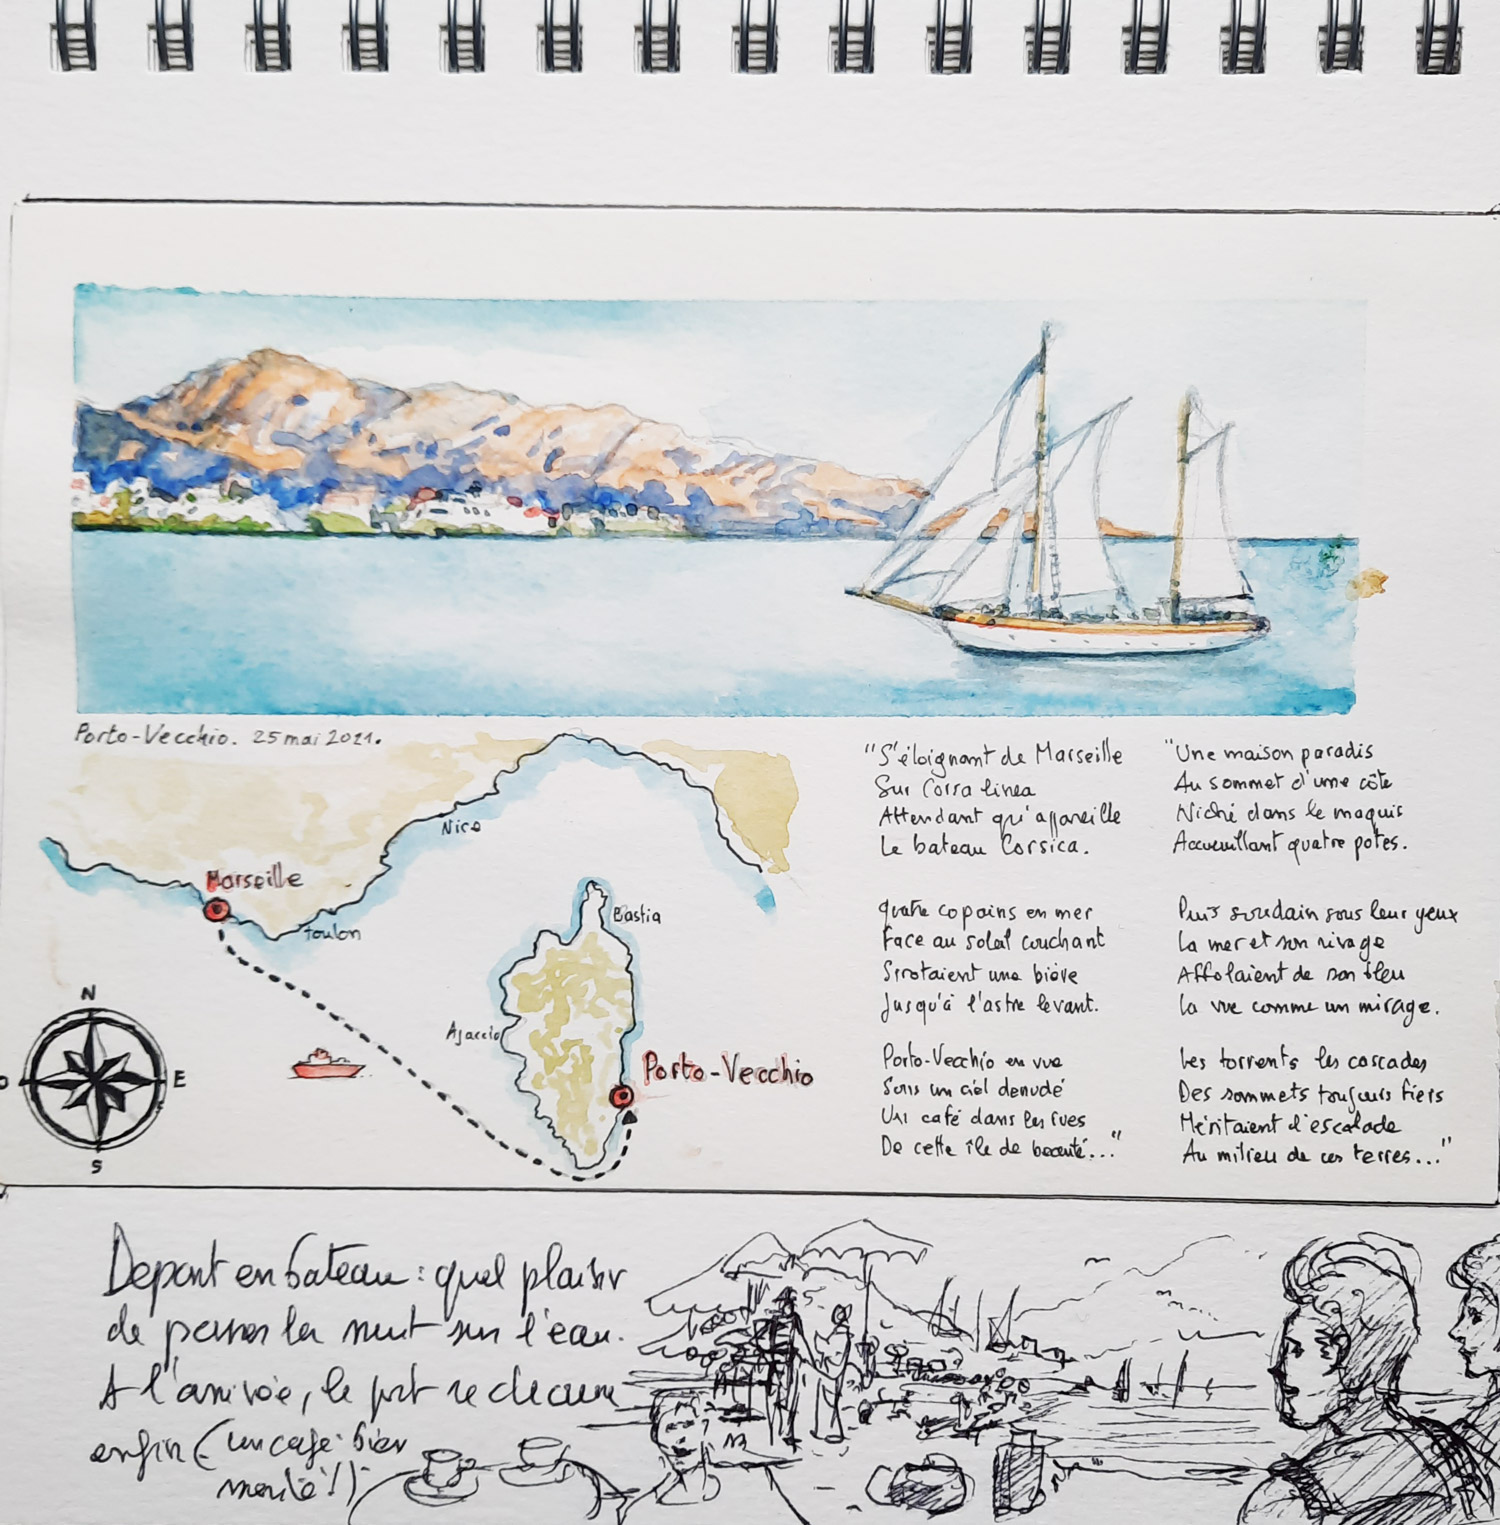 Porto-Vecchio. 25 mai 2021.
Nice
Marseille
Toulon
Bastia
Ajaccio
Porto-Vecchio
N
O
E
S
"S'éloignant de Marseille
Sur Corsa linea
Attendant qu'appareille
Le bateau Corsica.
Quatre copains en mer
Face au soleil couchant
Sirotaient une bière
Jusqu'à l'astre levant.
Porto-Vecchio en vue
Sous un ciel denudé
Un café dans les rues
De cette île de beauté..."
"Une maison paradis
Au sommet d'une côte
Niché dans le maquis
Accueillant quatre potes.
Puis soudain sous leur yeux
La mer et son rivage
Affolaient de son bleu
La vue comme un mirage.
Les torrents les cascades
Des sommets toujours fiers
Méritaient l'escalade
Au milieu de ces terres..."
Depart en bateau : quel plaisir
de passer la nuit sur l'eau.
A l'arrivée, le port se dessine
enfin (un café bien
mérité !)